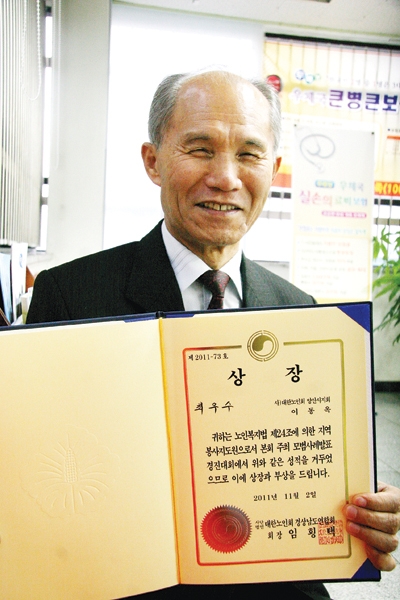 우체국
큰병큰보
우체국
실손의료비보험
제 2011-73 호
상장
최우수
사)대한노인회 양산시지회
이동욱
귀하는 노인복지법 제24조에 의한 지역
봉사지도원으로서 본회 주최 모범사례발표
경진대회에서 위와 같은 성적을 거두었
으므로 이에 상장과 부상을 드립니다.
2011년 11월 2일
사단법인 대한노인회 경상남도연합회
회장 임형택